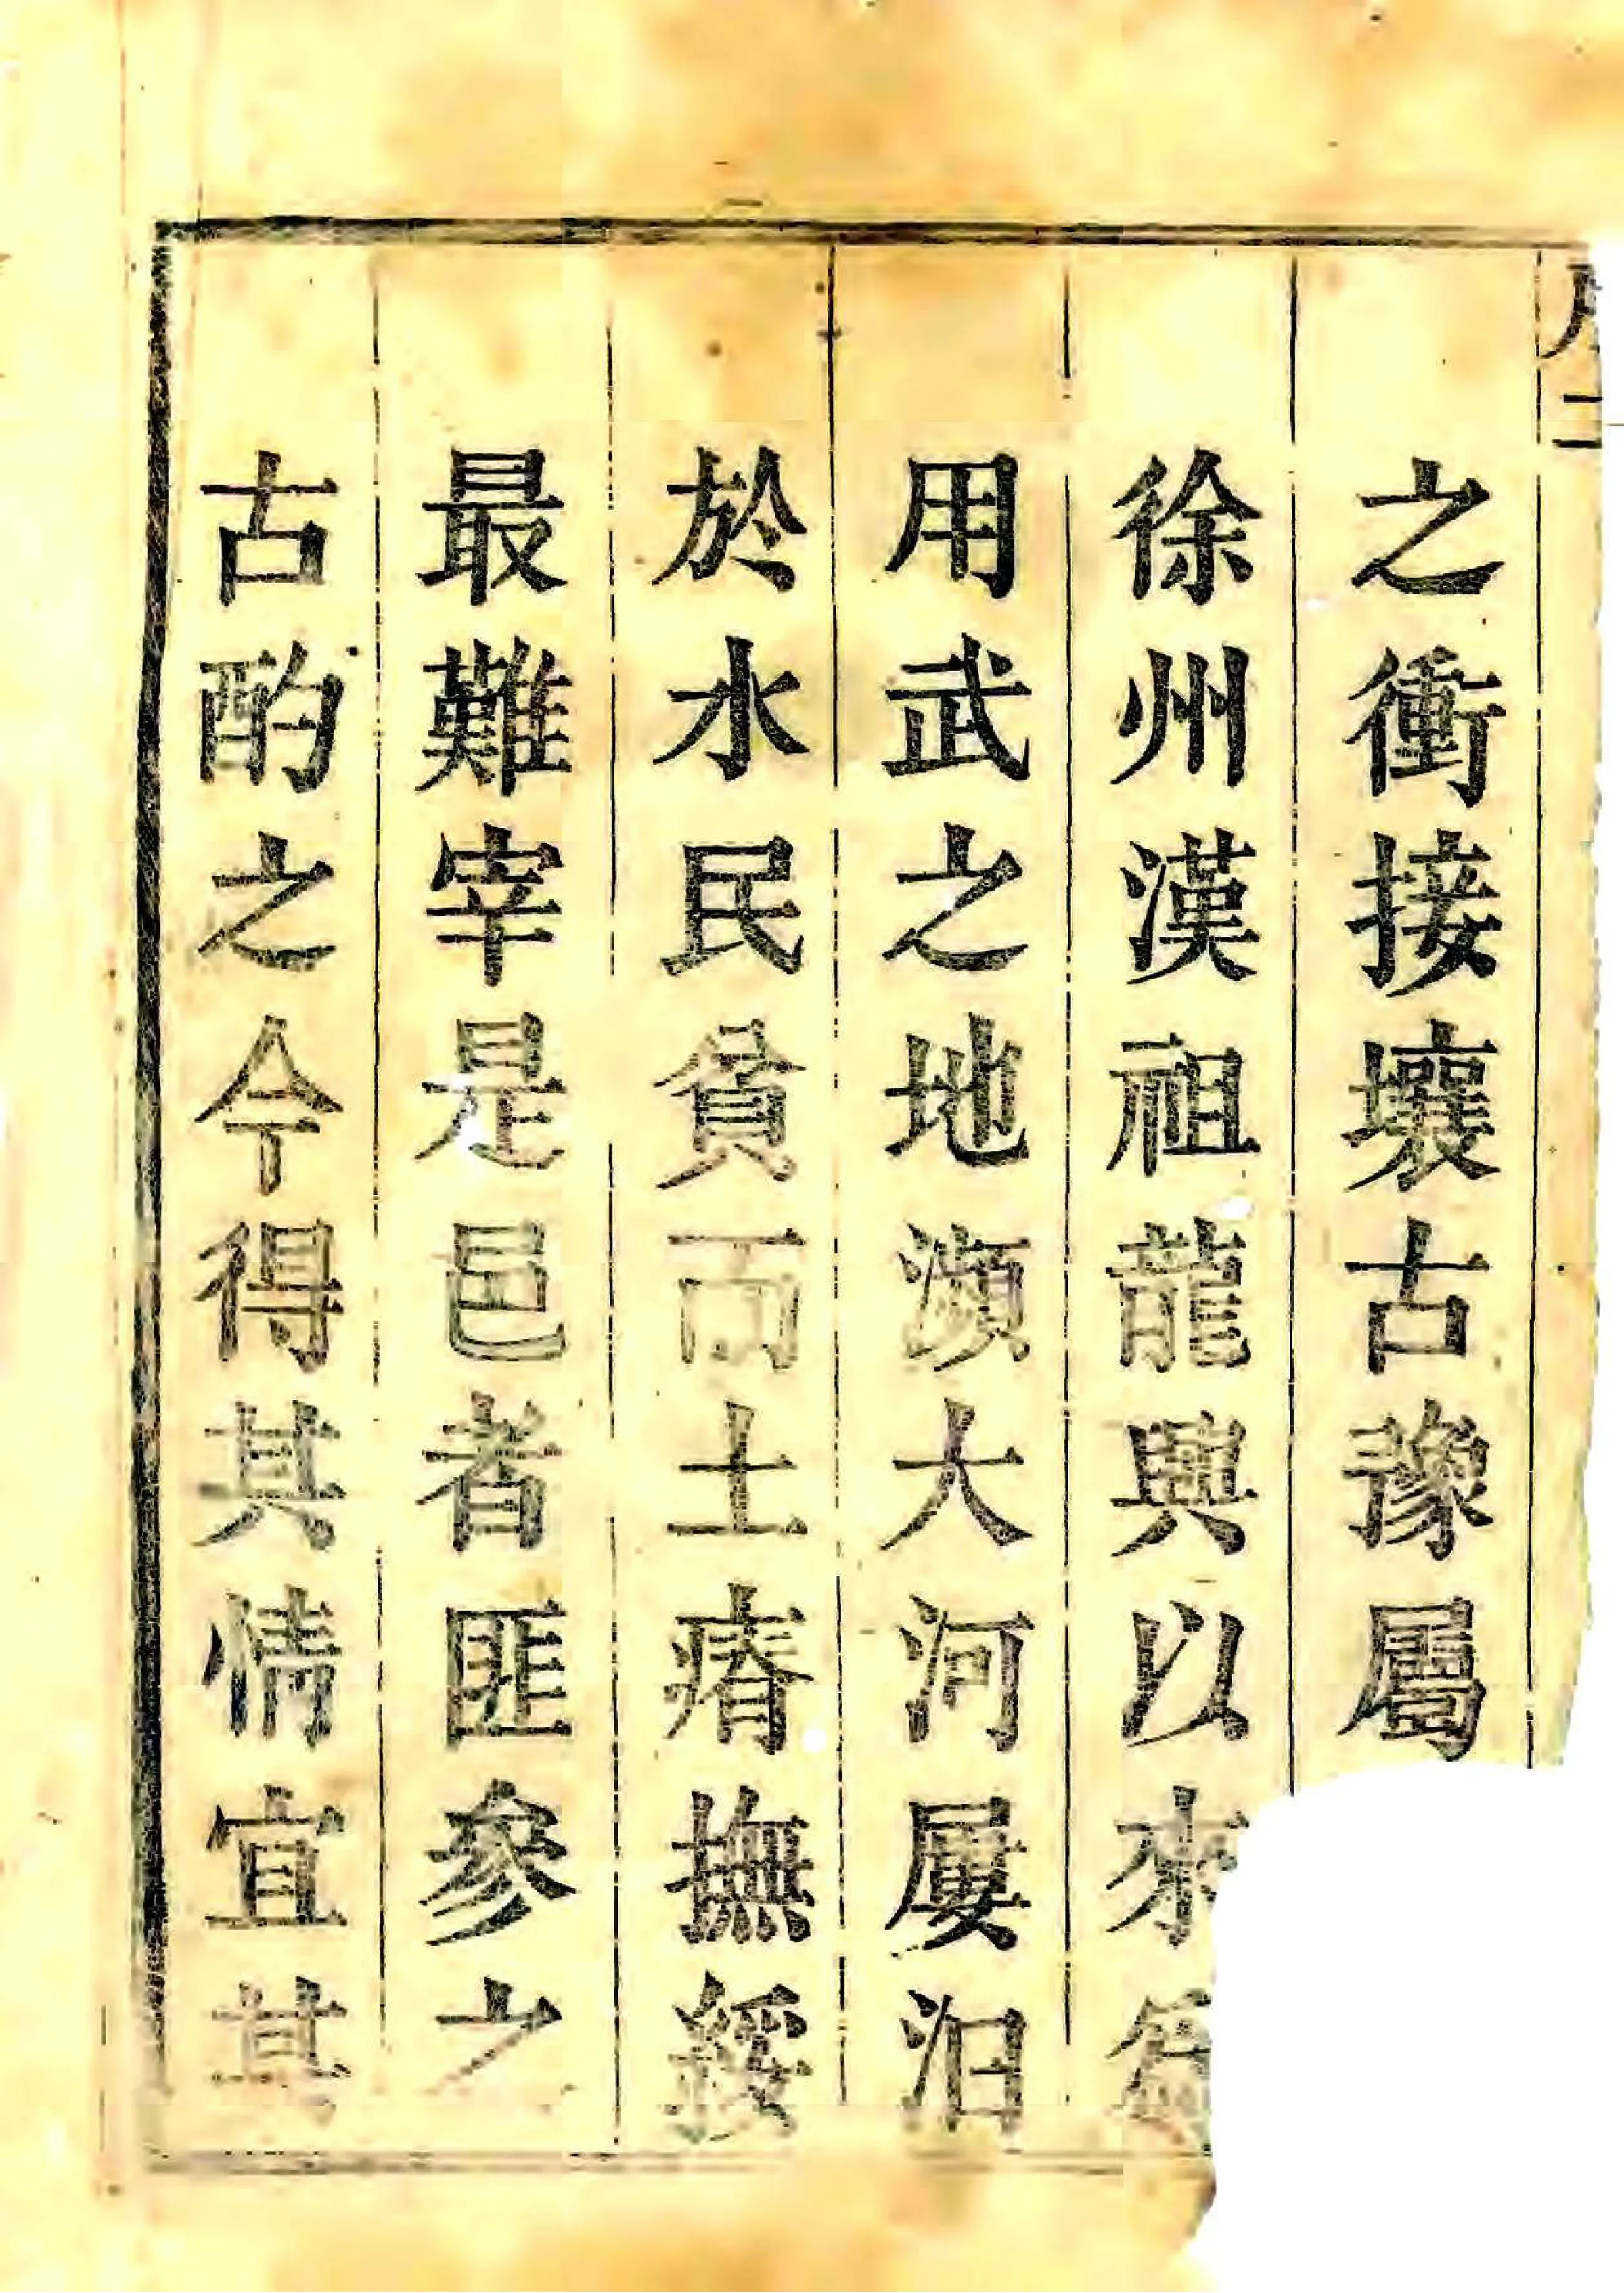 之衝接壤古豫屬
徐州漢祖龍興以來
用武之地瀕大河屢汩
於水民貧而土瘠撫綏
最難宰是邑者匪參之
古酌之今得其情宜其